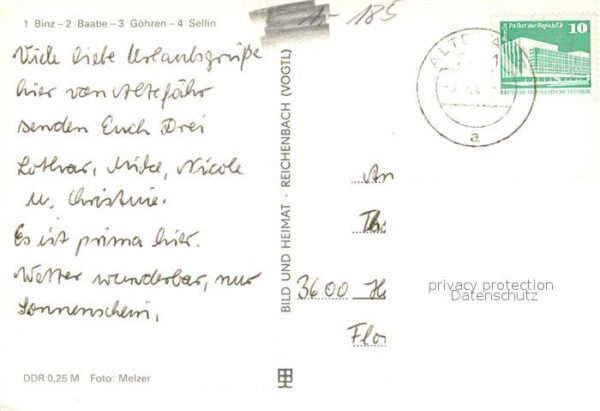 1 Binz – 2 Baabe – 3 Göhren – 4 Sellin
Viele liebe Urlaubsgrüße
hier von Altefähr
senden Euch Drei
Lothar, Mike, Nicole
u. Christine.
Es ist prima hier.
Wetter wunderbar, nur
Sonnenschein.
DDR 0,25 M Foto: Melzer
BILD UND HEIMAT · REICHENBACH (VOGTL)
1-185
ALTE
a
Palast der Republik
10
DEUTSCHE DEMOKRATISCHE REPUBLIK
An
Tho
3600 H
Flo
privacy protection
Datenschutz